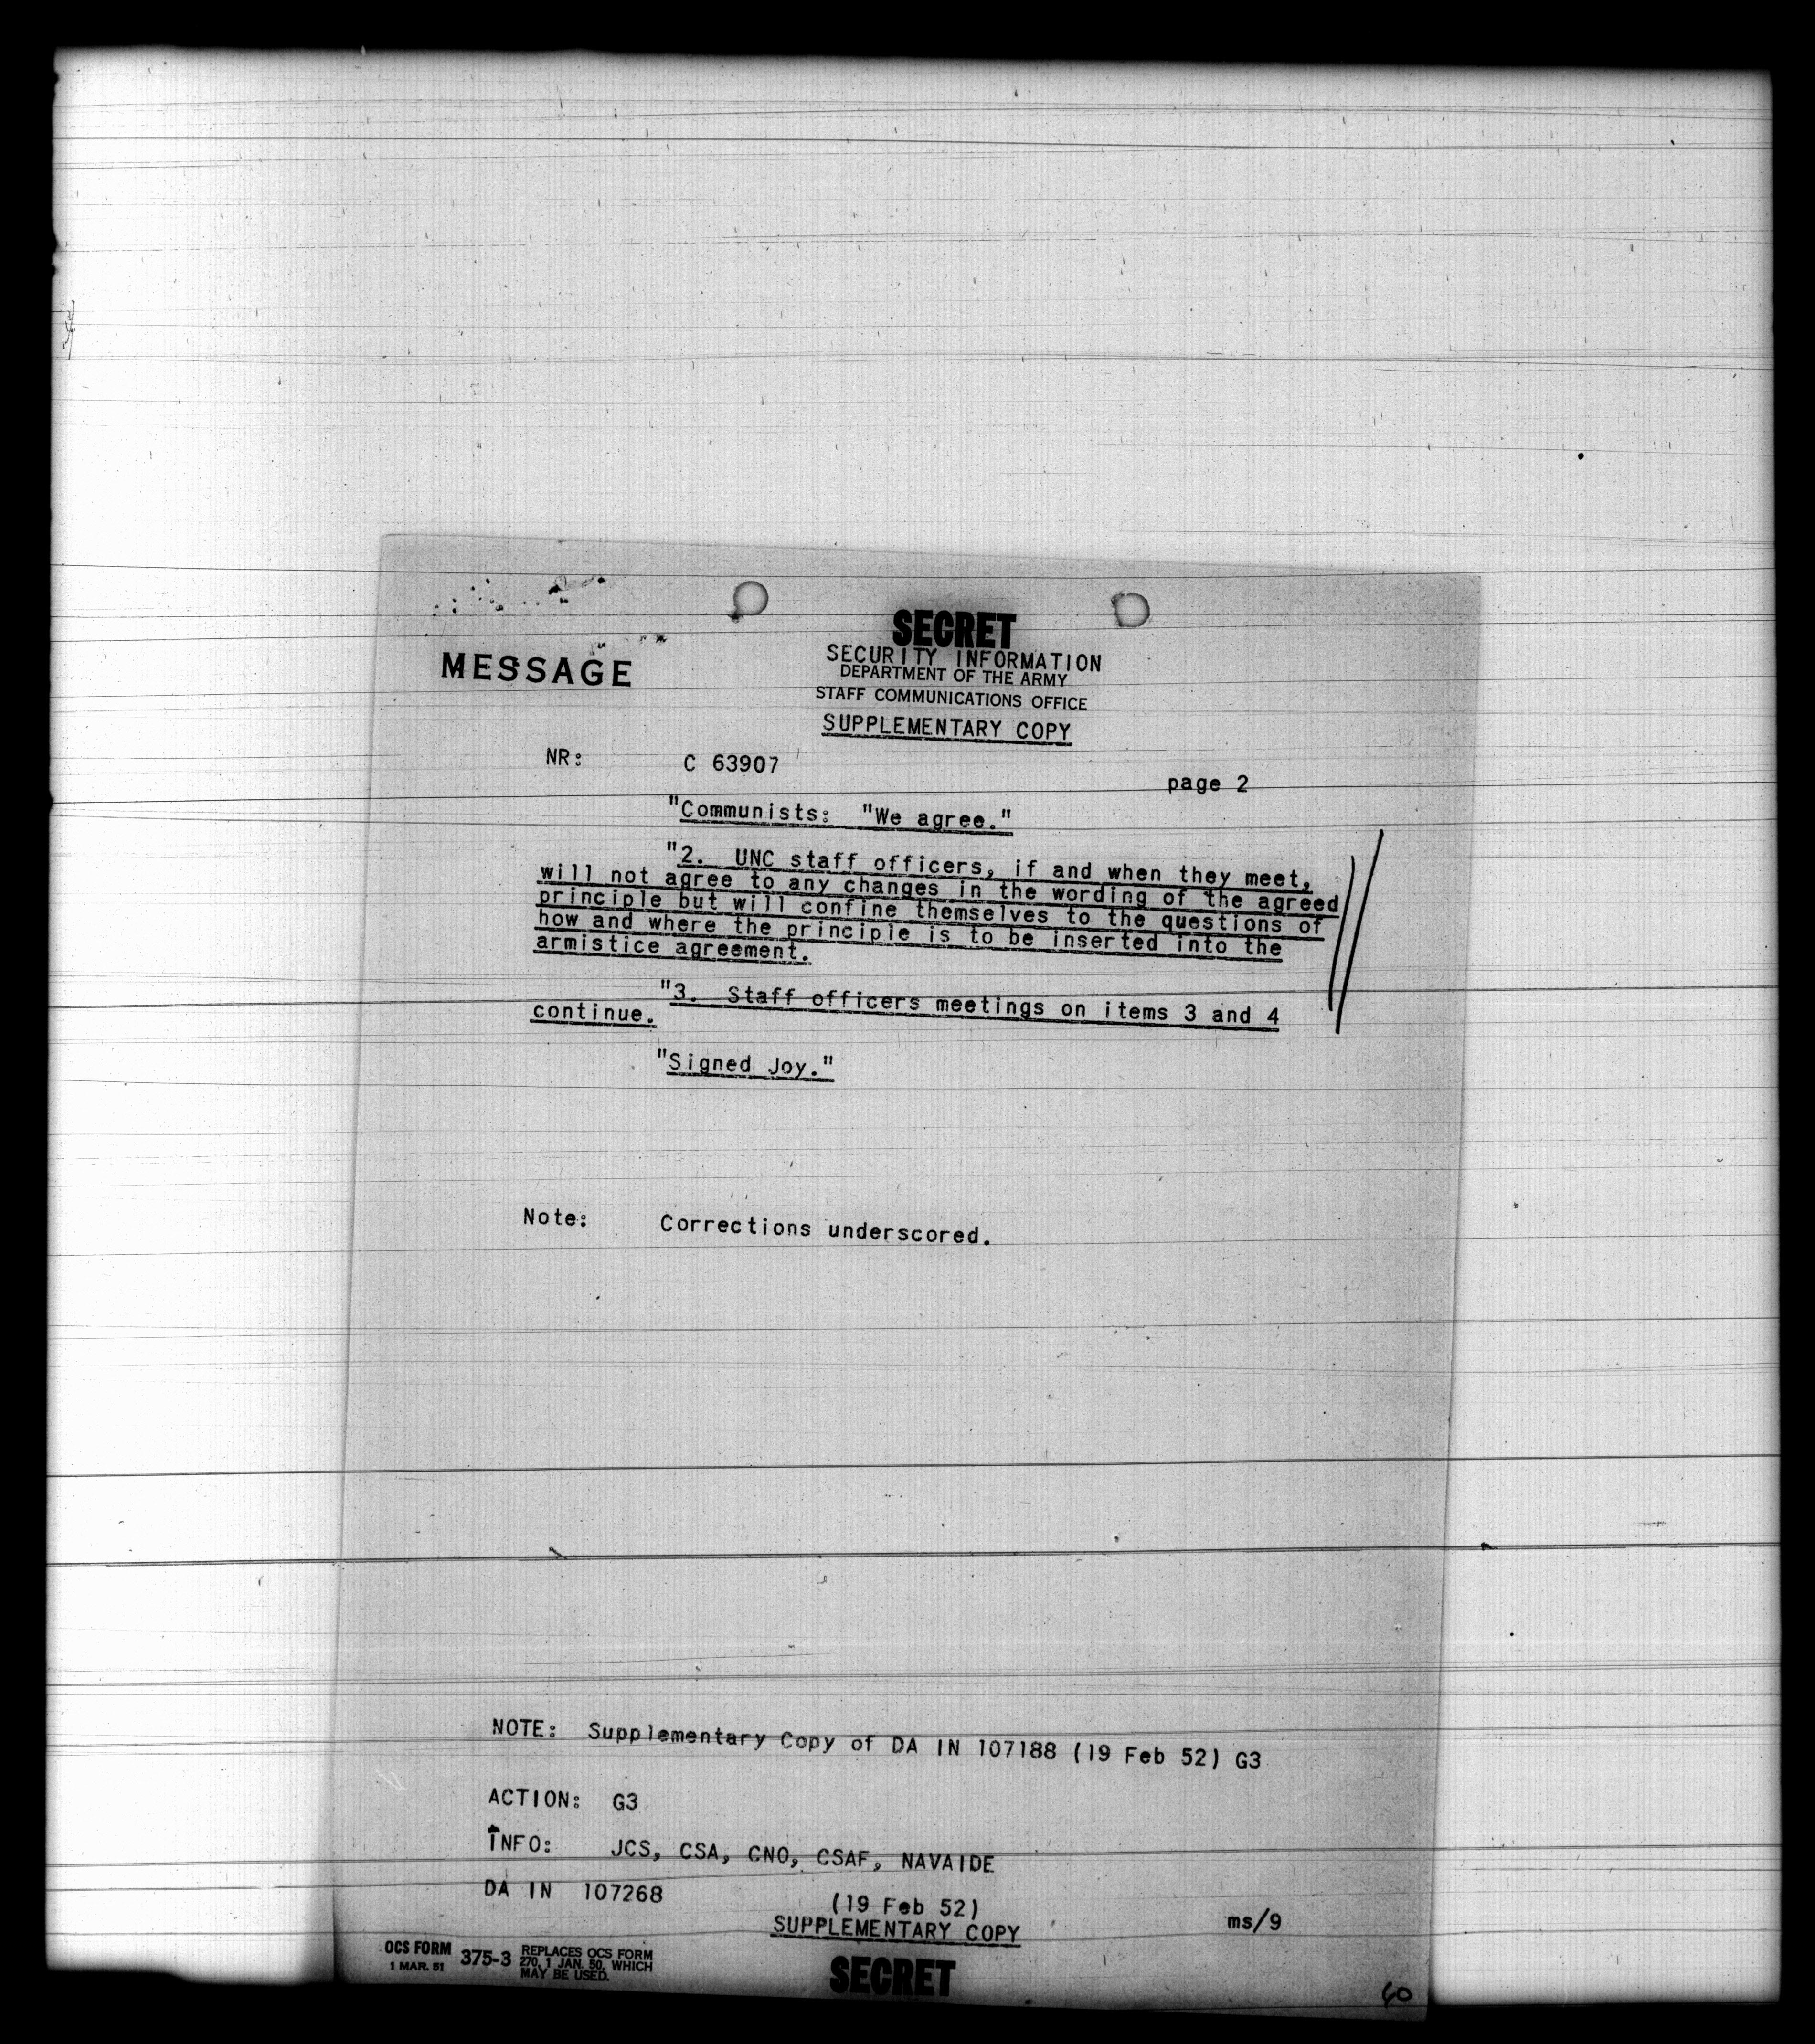 SECRET
SECURITY INFORMATION
MESSAGE
DEPARTMENT OF THE ARMY
STAFF COMMUNICATIONS OFFICE
SUPPLEMENTARY COPY
NR: C 63907
page 2
"Communists: "We agree."
"2. UNC staff officers, if and when they meet,
will not agree to any changes in the wording of the agreed
principle but will confine themselves to the questions of
how and where the principle is to be inserted into the
armistice agreement.
"3. Staff officers meetings on items 3 and 4
continue.
"Signed Joy."
Note: Corrections underscored.
NOTE: Supplementary Copy of DA IN 107188 (19 Feb 52) G3
ACTION: G3
INFO: JCS, CSA, CNO, CSAF, NAVAIDE
DA IN 107268 (19 Feb 52) ms/9
SUPPLEMENTARY COPY
OCS FORM 375-3 REPLACES OCS FORM
1 MAR. 51 270, 1 JAN. 50, WHICH
MAY BE USED.
SECRET